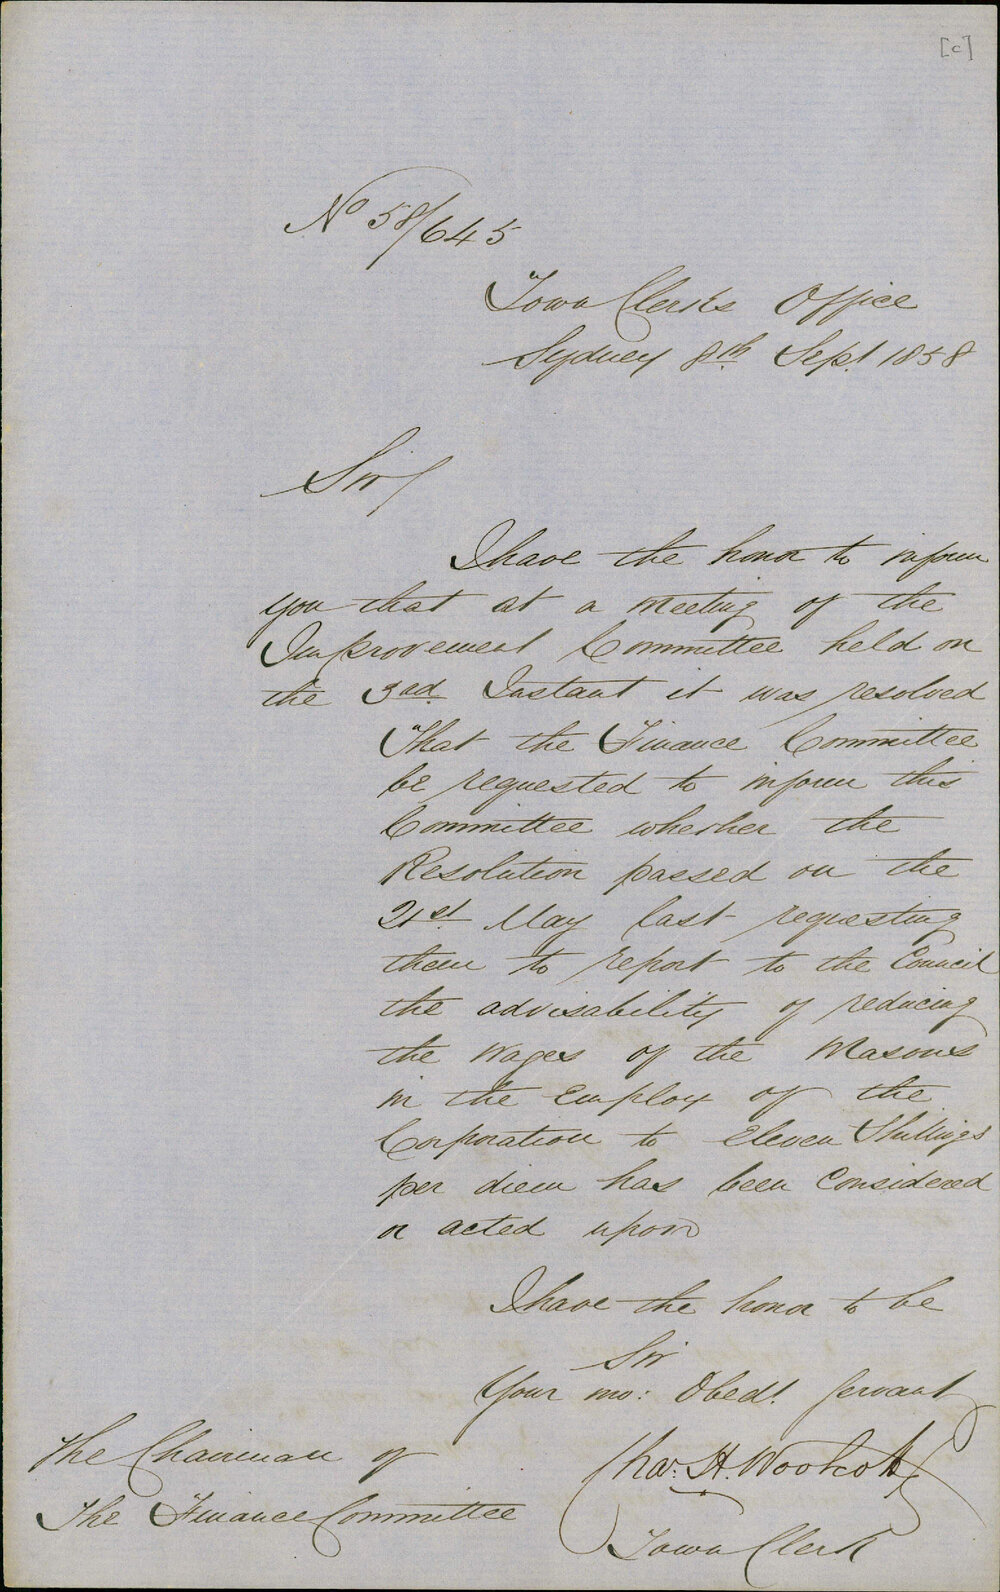 [c]
No 58/645
Town Clerks Office
Sydney 8th. Sept. 1858
Sir/
I have the honor to inform
you that at a meeting of the
Improvement Committee held on
the 3rd. Instant it was resolved
"That the Finance Committee
be requested to inform this
Committee whether the
Resolution passed on the
21st. May last requesting
them to report to the Council
the advisability of reducing
the Wages of the Masons
in the Employ of the
Corporation to Eleven Shillings
per diem has been Considered
or acted upon
I have the honor to be
Sir
Your mo: Obedt. Servant
Chas. H. Woolcott
Town Clerk
The Chairman of
The Finance Committee